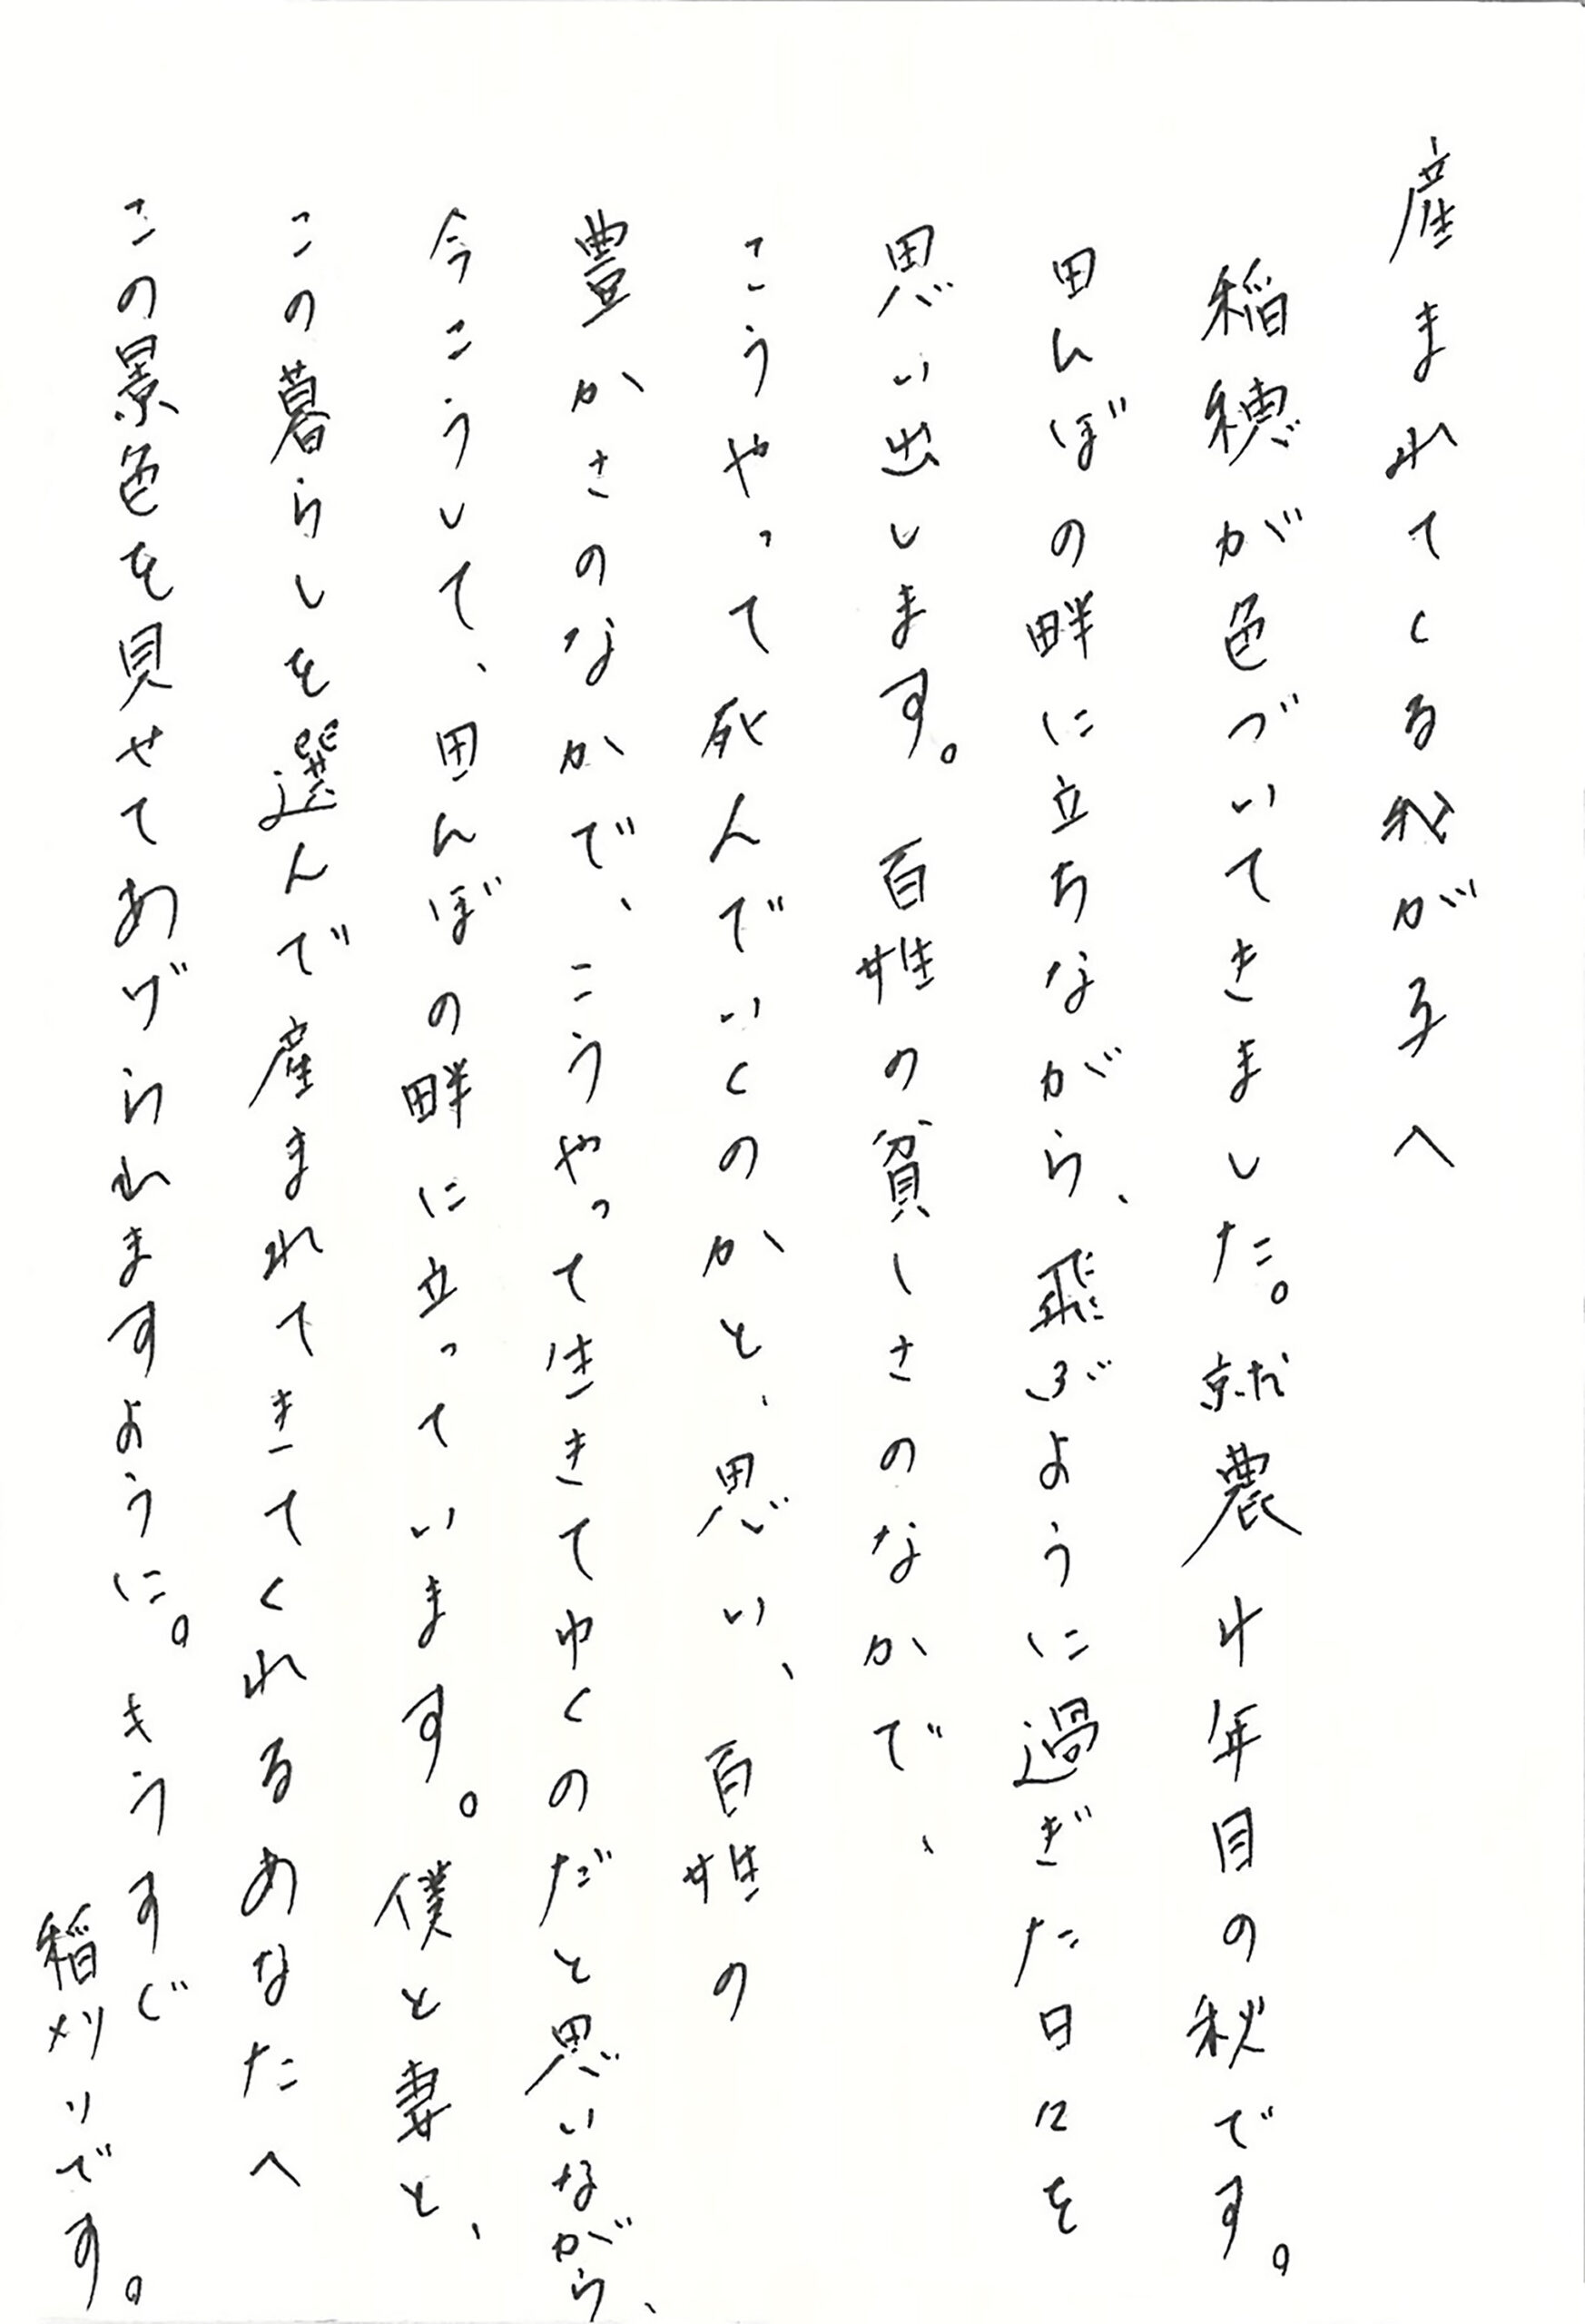 産まれてくる我が子へ
稲穂が色づいてきました。就農十年目の秋です。
田んぼの畔に立ちながら、飛ぶように過ぎた日々を
思い出します。百姓の貧しさのなかで、
こうやって死んでいくのかと、思い、百姓の
豊かさのなかで、こうやって生きてゆくのだと思いながら、
今こうして、田んぼの畔に立っています。僕と妻と、
この暮らしを選んで産まれてきてくれるあなたへ
この景色を見せてあげられますように。もうすぐ
稲刈りです。